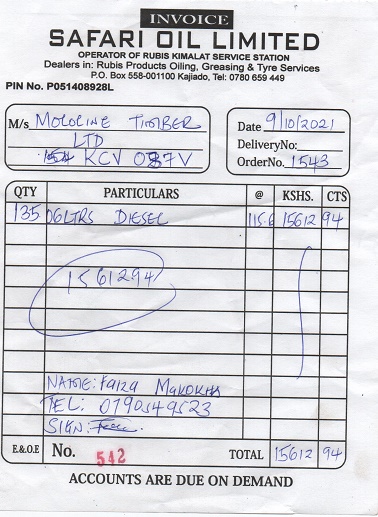 INVOICE
SAFARI OIL LIMITED
OPERATOR OF RUBIS KIMALAT SERVICE STATION
Dealers in: Rubis Products Oiling, Greasing & Tyre Services
P.O. Box 558-001100 Kajiado, Tel: 0780 659 449
PIN No. P051408928L
M/s MOLOLINE TIMBER
LTD
KCV 087V
Date 9/10/2021
DeliveryNo:
OrderNo. 1543
QTY PARTICULARS @ KSHS. CTS
135 06LTRS DIESEL 115.6 15612 94
1561294
NAME: Faiza MAKOKHA
TEL: 0790549523
SIGN:
E.&O.E No. 542 TOTAL 15612 94
ACCOUNTS ARE DUE ON DEMAND